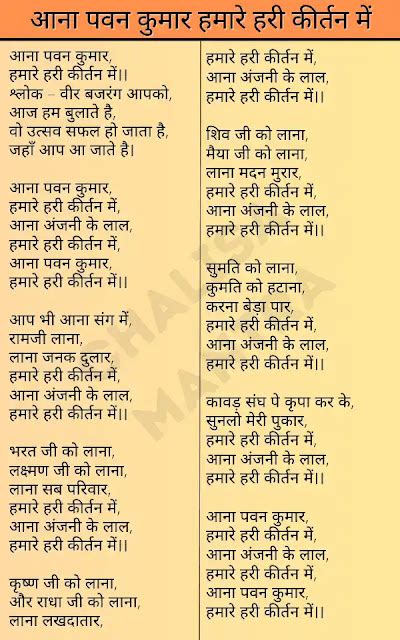 आना पवन कुमार हमारे हरी कीर्तन में
आना पवन कुमार,
हमारे हरी कीर्तन में।।
श्लोक – वीर बजरंग आपको,
आज हम बुलाते है,
वो उत्सव सफल हो जाता है,
जहाँ आप आ जाते है।
आना पवन कुमार,
हमारे हरी कीर्तन में,
आना अंजनी के लाल,
हमारे हरी कीर्तन में,
आना पवन कुमार,
हमारे हरी कीर्तन में।।
आप भी आना संग में,
रामजी लाना,
लाना जनक दुलार,
हमारे हरी कीर्तन में,
आना अंजनी के लाल,
हमारे हरी कीर्तन में।।
भरत जी को लाना,
लक्ष्मण जी को लाना,
लाना सब परिवार,
हमारे हरी कीर्तन में,
आना अंजनी के लाल,
हमारे हरी कीर्तन में।।
कृष्ण जी को लाना,
और राधा जी को लाना,
लाना लखदातार,
हमारे हरी कीर्तन में,
आना अंजनी के लाल,
हमारे हरी कीर्तन में।।
शिव जी को लाना,
मैया जी को लाना,
लाना मदन मुरार,
हमारे हरी कीर्तन में,
आना अंजनी के लाल,
हमारे हरी कीर्तन में।।
सुमति को लाना,
कुमति को हटाना,
करना बेड़ा पार,
हमारे हरी कीर्तन में,
आना अंजनी के लाल,
हमारे हरी कीर्तन में।।
कावड़ संघ पे कृपा कर के,
सुनलो मेरी पुकार,
हमारे हरी कीर्तन में,
आना अंजनी के लाल,
हमारे हरी कीर्तन में।।
आना पवन कुमार,
हमारे हरी कीर्तन में,
आना अंजनी के लाल,
हमारे हरी कीर्तन में,
आना पवन कुमार,
हमारे हरी कीर्तन में।।